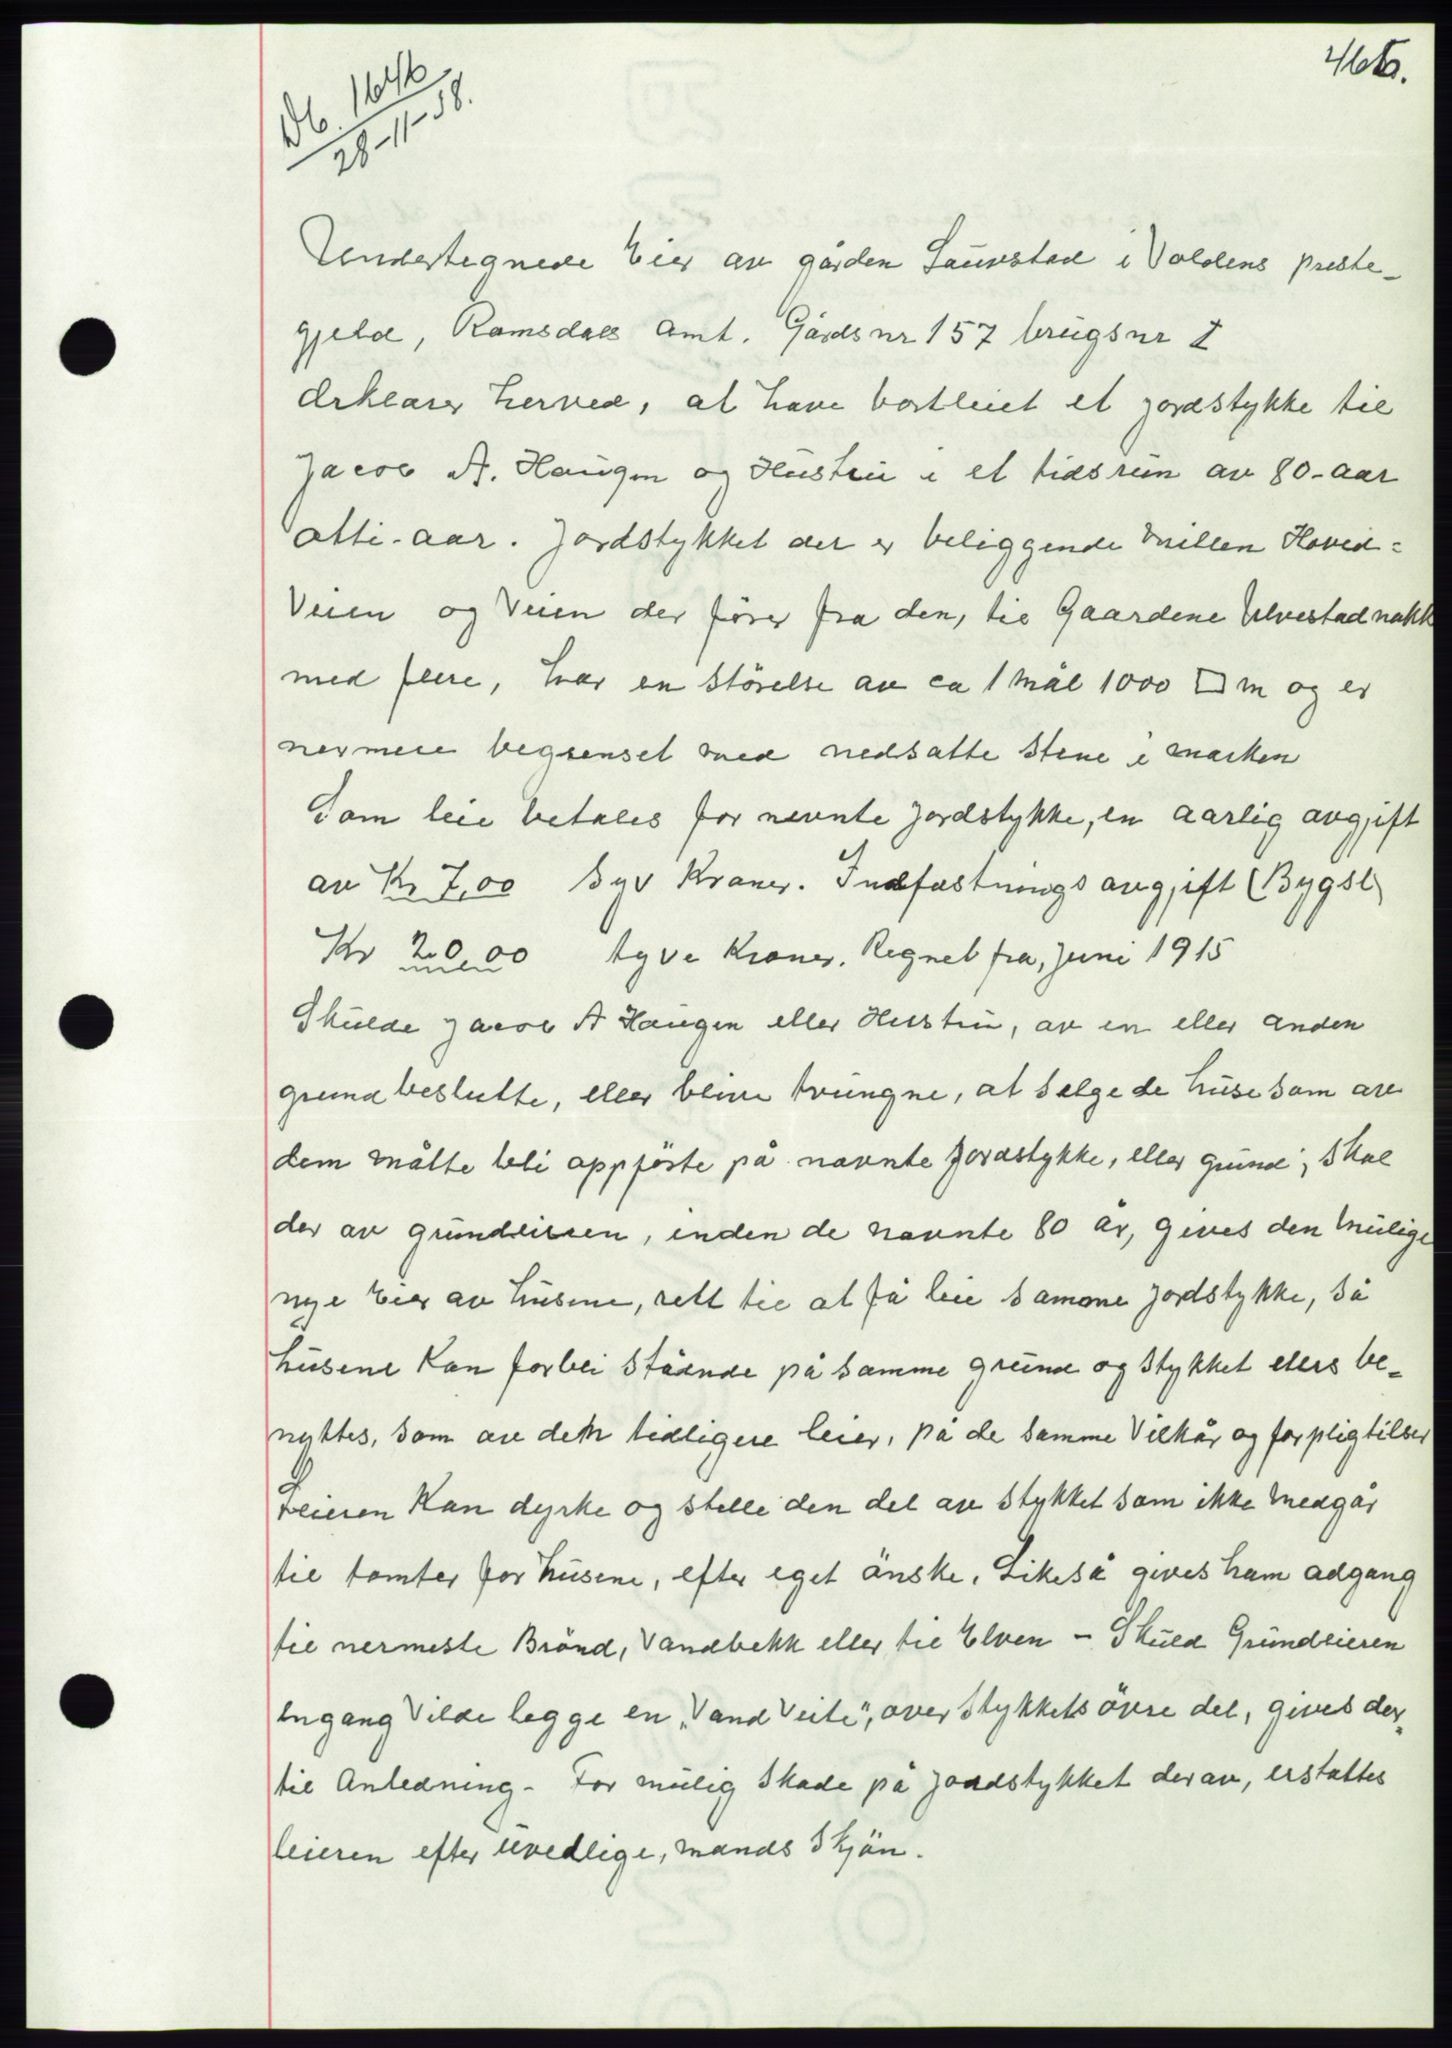 466.
Db. 1646
28-11-38.
Undertegnede Eier av gården Saurstad i Voldens preste-
gjeld, Romsdals amt. Gårdsnr 157 brugsnr 1
Erklærer herved, at have bortleiet et jordstykke til
Jacob A. Haugen og Hustru i et tidsrum av 80-aar
otti-aar. Jordstykket der er beliggende mellen Hoved=
Veien og Veien der fører fra den, til Gaardene Ulvestadnakk
med flere, har en störelse av ca 1 mål 1000 □ m og er
nermere begrenset med nedsatte stene i marken
Som leie betales for nevnte jordstykke, en aarlig avgift
av Kr 7,00 Syv Kroner. Indfæstningsavgift (Bygsl)
Kr 20,00 tyve Kroner. Regnet fra, Juni 1915
Skulde Jacob A Haugen eller Hustru, av en eller anden
grund beslutte, eller blive tvungne, at selge de huse som av
dem måtte bli oppförte på navnte Jordstykke, eller grund, skal
der av grundeieren, inden de navnte 80 år, gives den mulige
nye Eier av husene, rett til at få leie samme jordstykke, så
husene kan forbli stående på samme grund og stykket ellers be-
nyttes, som av den tidligere leier, på de samme Vilkår og forpligtilser
Leieren kan dyrke og stelle den del av stykket som ikke medgår
til tomter for husene, efter eget önske. Likeså gives ham adgang
til nermeste Brönd, Vandbekk eller til Elven - Skuld Grundeieren
engang Vilde legge en „Vand Veite", over Stykkets övre del, gives der-
til Anledning - For mulig Skade på jordstykket derav, erstattes
leieren efter uvedlige, mands Skjön.